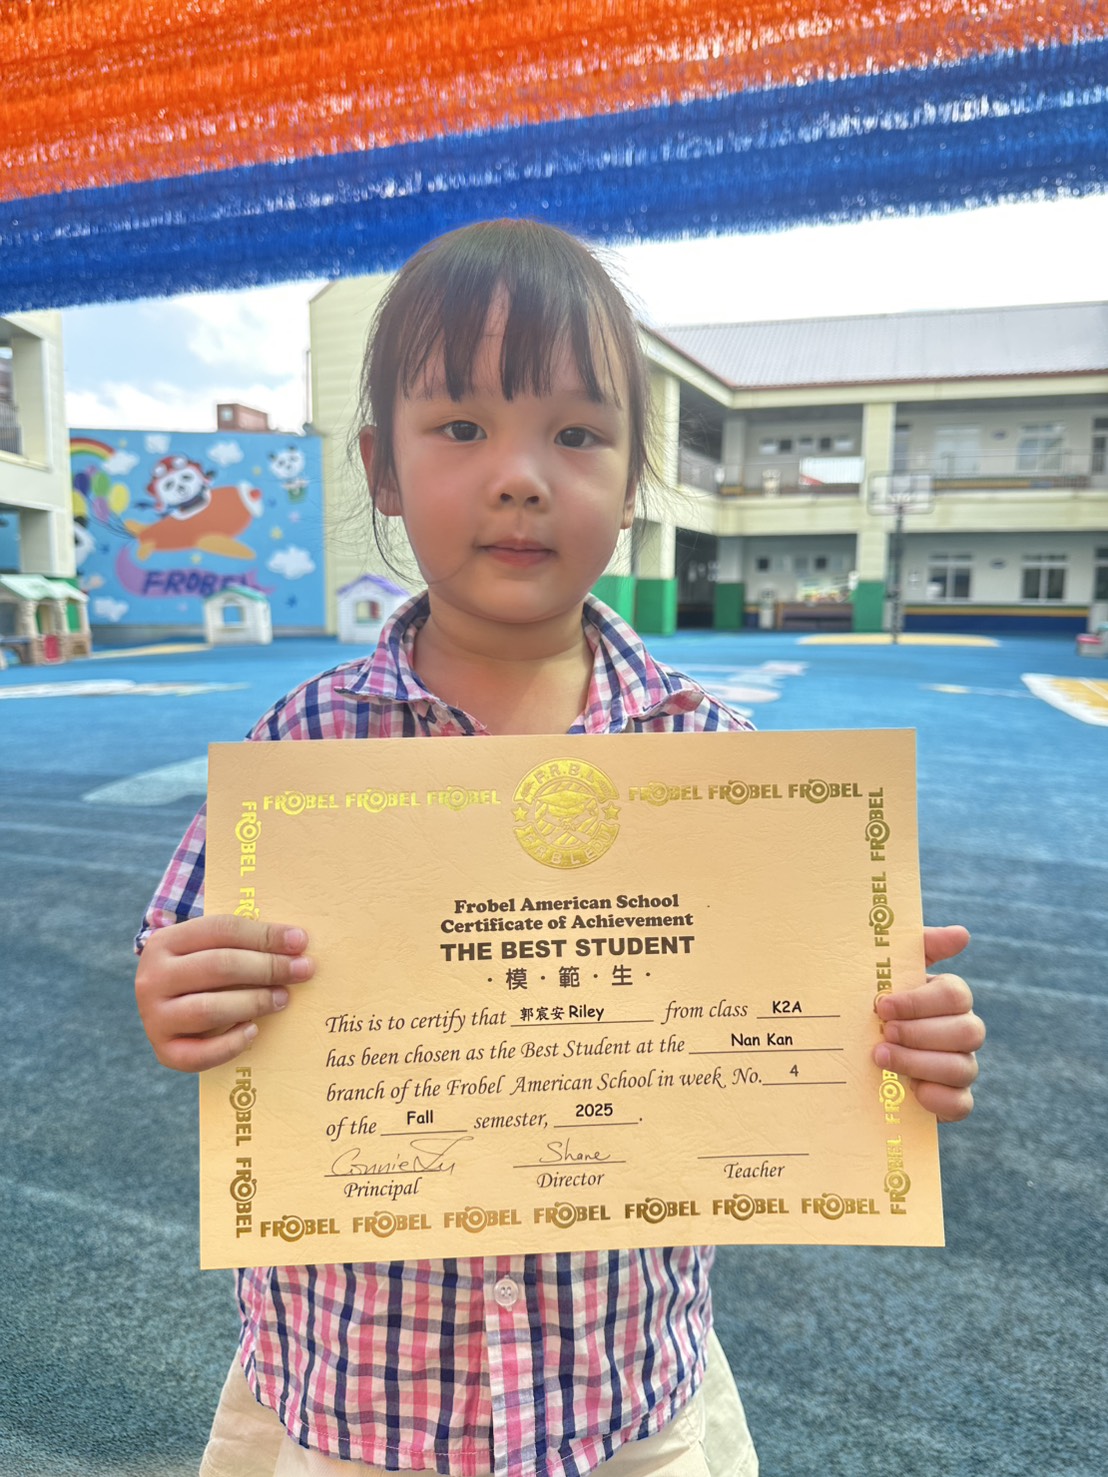 FROBEL
FROBEL FROBEL FROBEL FROBEL FROBEL FROBEL
F.R.B.L
FROBEL
FROBEL
FROBEL
FROBEL
FROBEL
Frobel American School
Certificate of Achievement
THE BEST STUDENT
·模·範·生·
This is to certify that 郭宸安 Riley from class K2A
has been chosen as the Best Student at the Nan Kan
branch of the Frobel American School in week No. 4
of the Fall semester, 2025.
Connie Shane
Principal Director Teacher
FROBEL
FROBEL
FROBEL
FROBEL FROBEL FROBEL FROBEL FROBEL FROBEL FROBEL